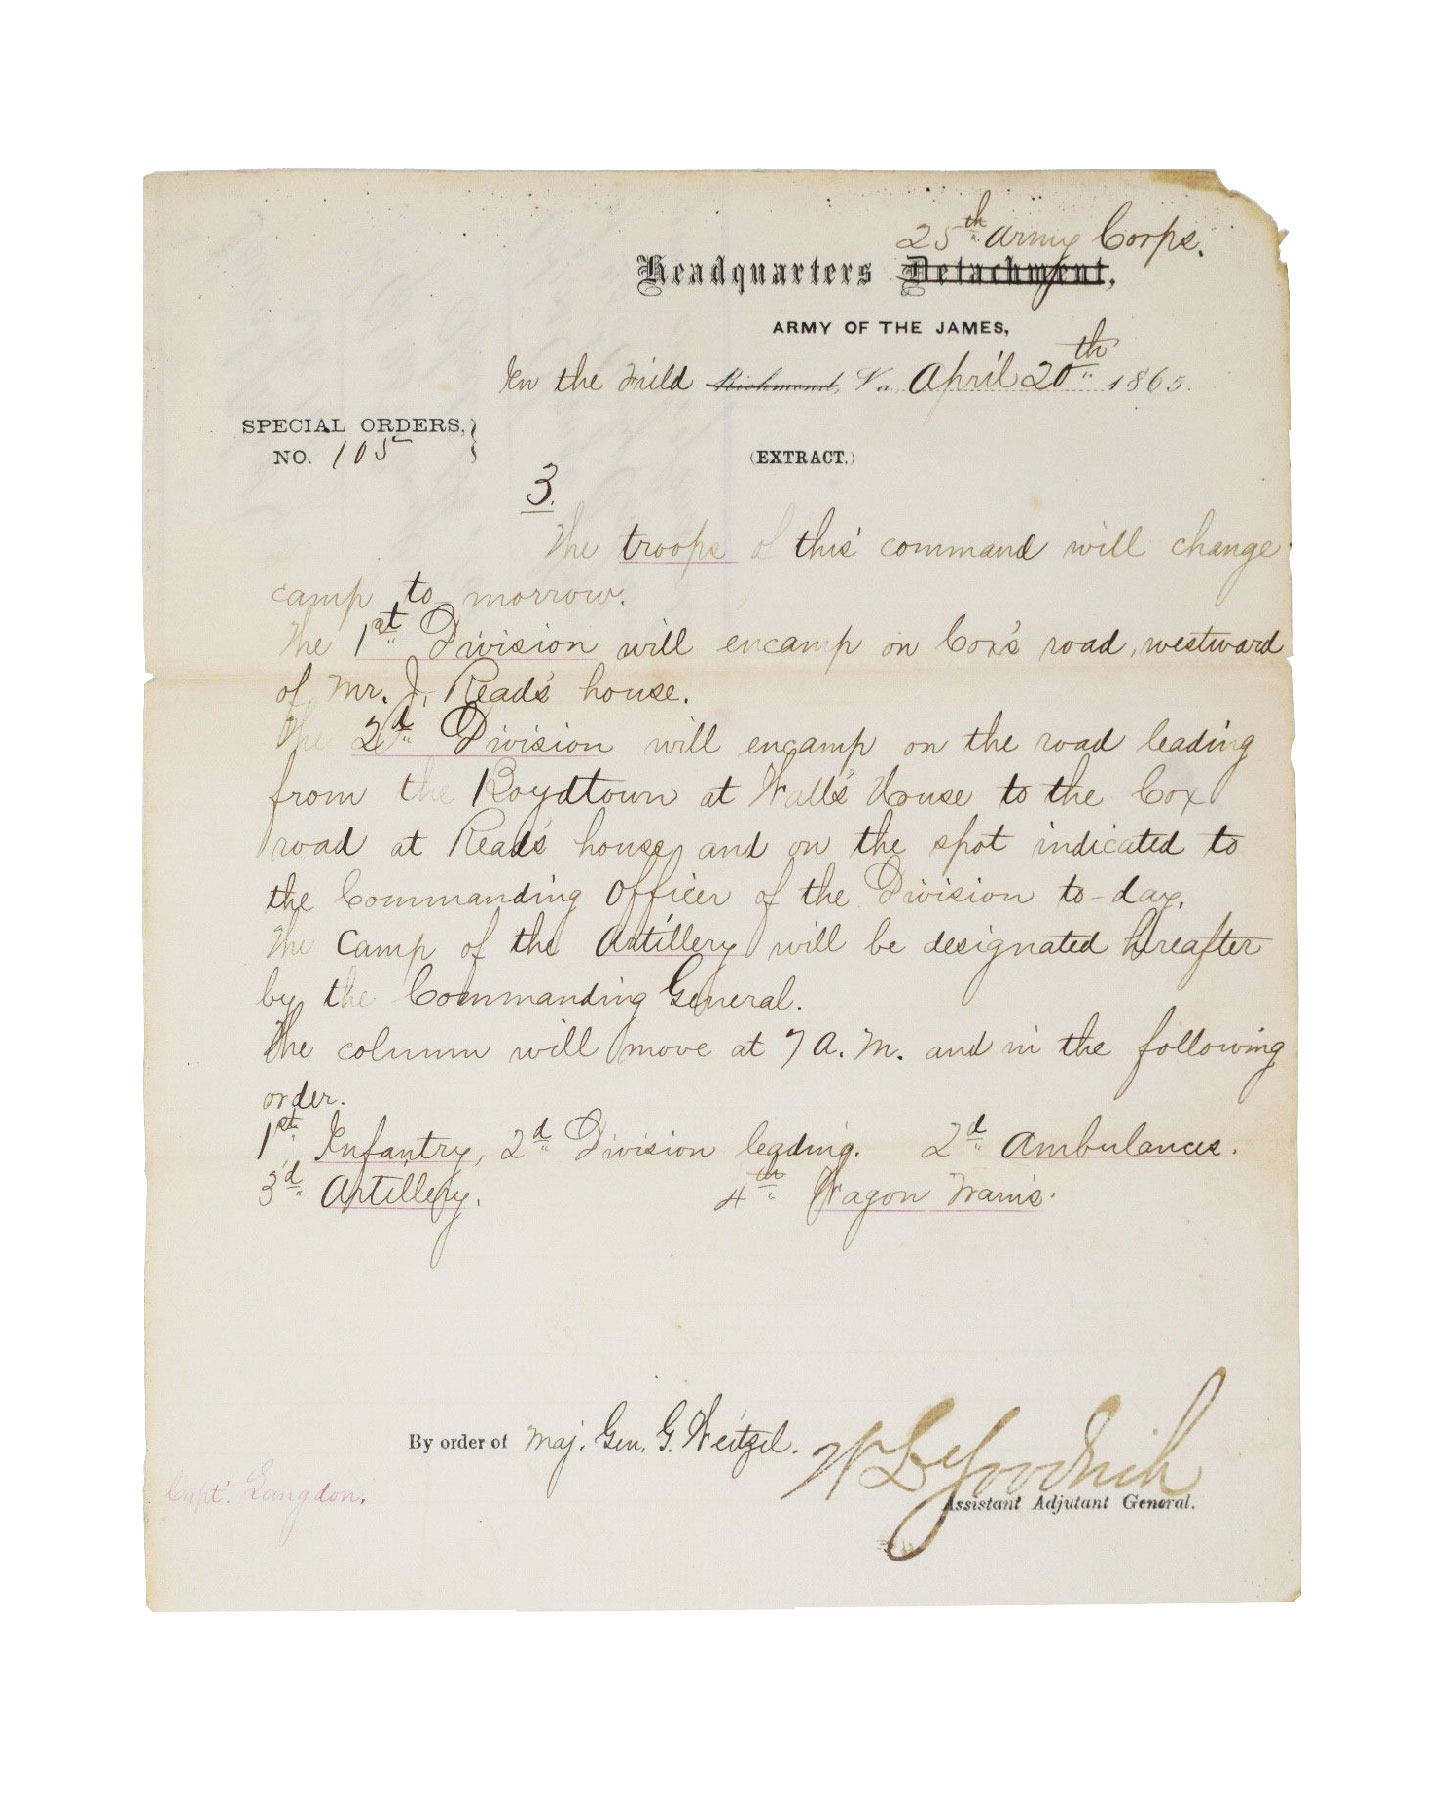 25th Army Corps.
Headquarters Detachment,
ARMY OF THE JAMES,
In the Field Richmond, Va., April 20th 1865.
SPECIAL ORDERS,
NO. 105
(EXTRACT.)
3.
The troops of this command will change
camp to morrow.
The 1st Division will encamp on Cox's road, westward
of Mr. J. Read's house.
The 2d Division will encamp on the road leading
from the Boydtown at Wall's House to the Cox
road at Read's house, and on the spot indicated to
the Commanding Officer of the Division to-day.
The Camp of the Artillery will be designated hereafter
by the Commanding General.
The column will move at 7 A. M. and in the following
order.
1st Infantry, 2d Division leading. 2d Ambulances.
3d Artillery. 4th Wagon Trains.
By order of Maj. Gen. G. Weitzel.
W L Goodrich
Assistant Adjutant General.
Capt. Langdon.